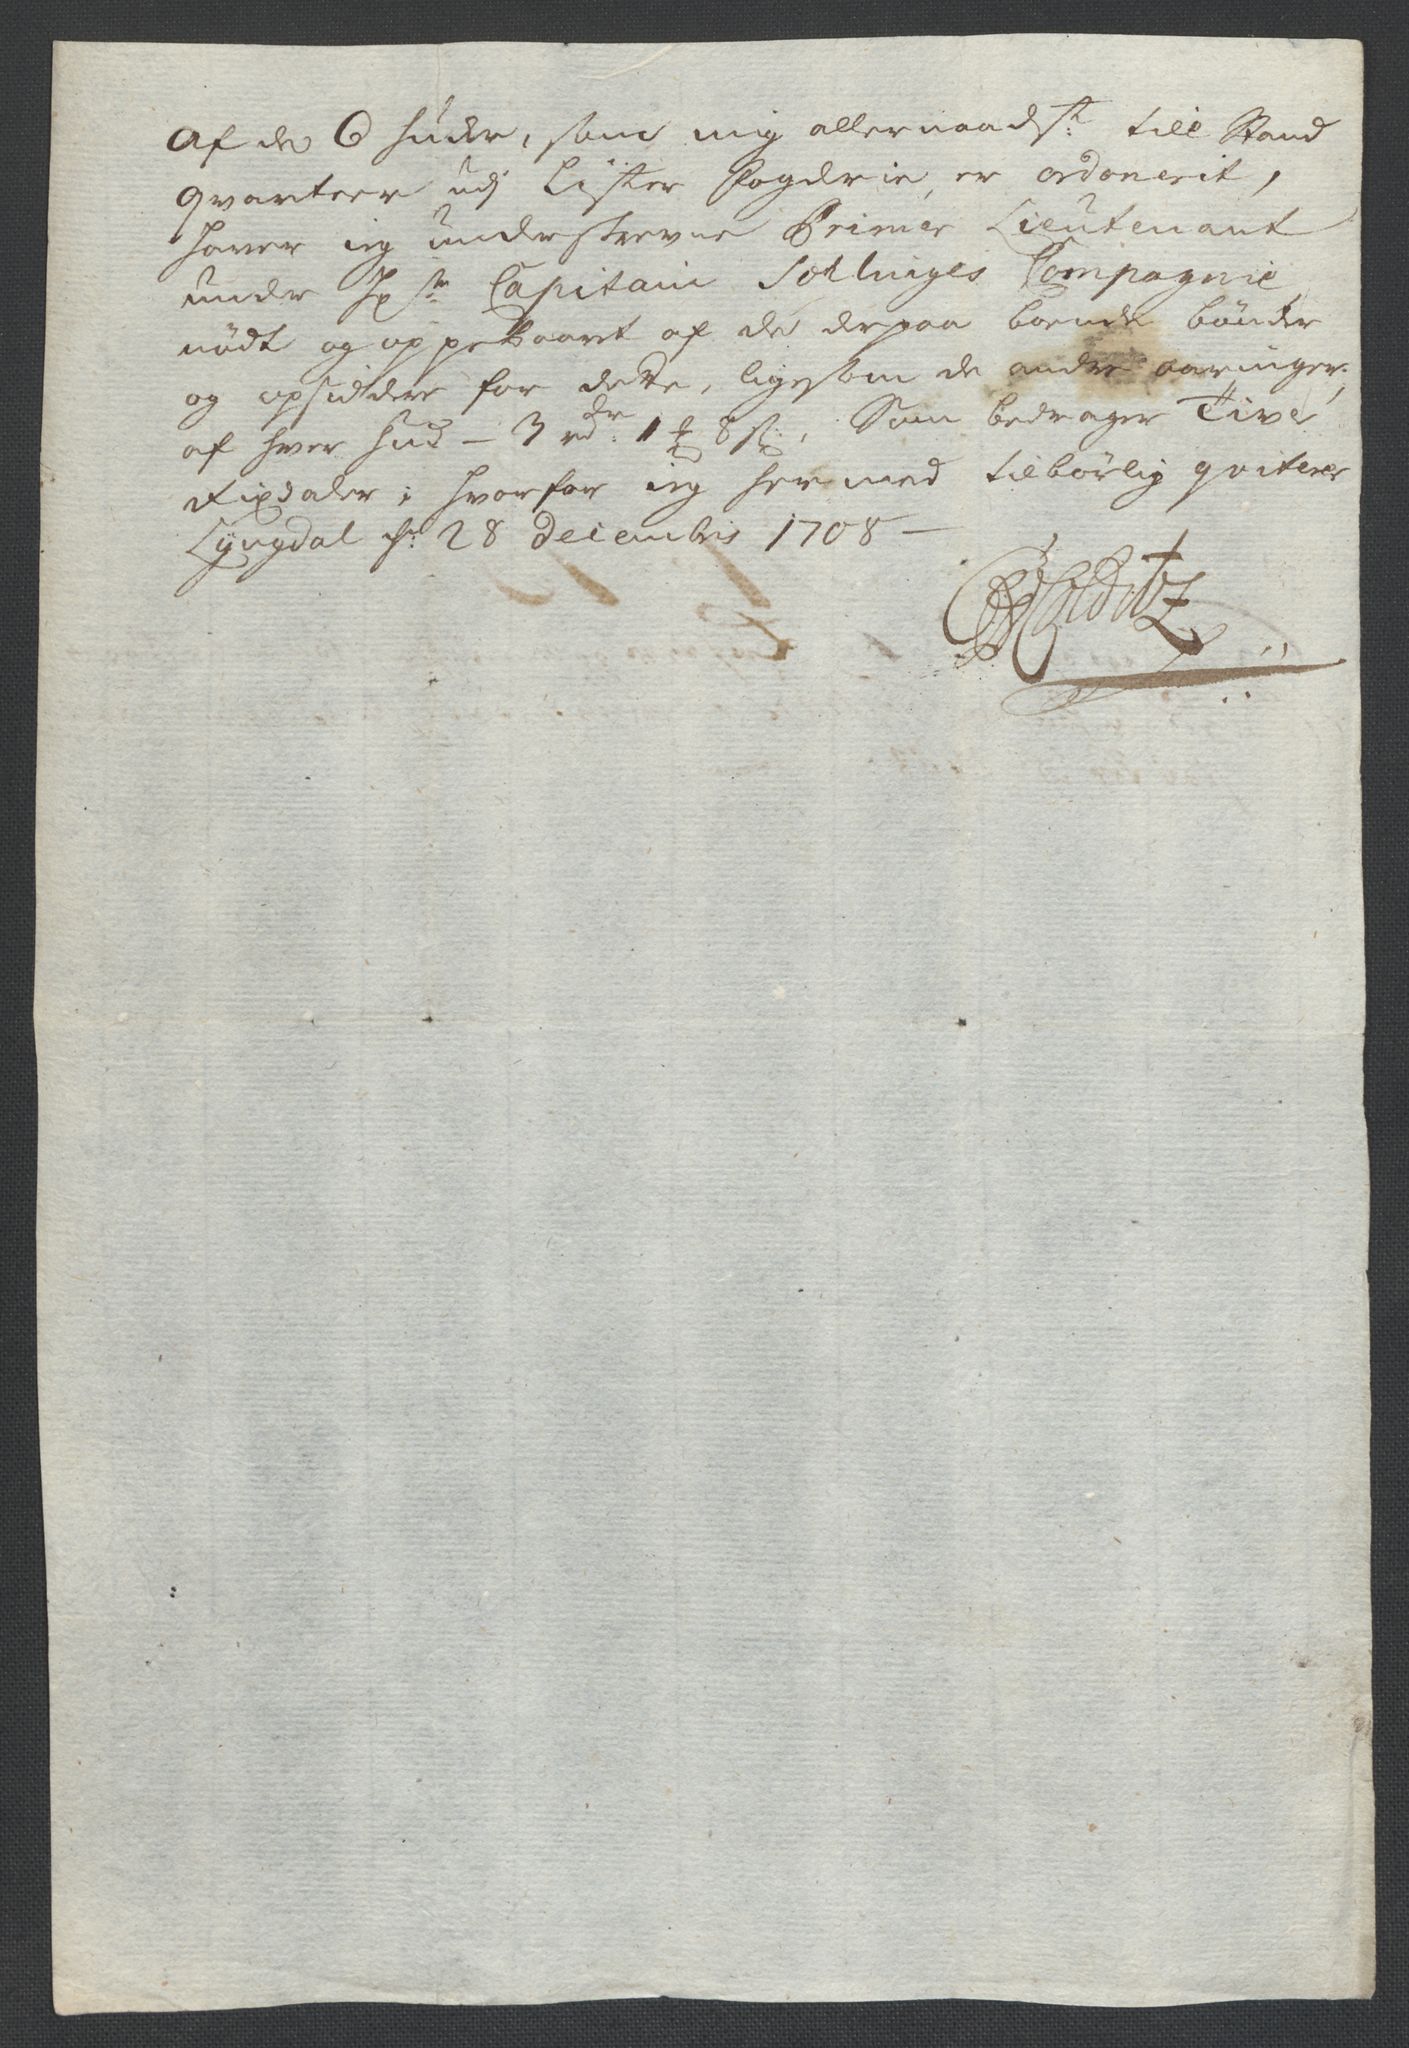 Af de 6 huder, som mig allernaadst: till Stand
qvarteer udj Lister Fogderie er ordonerit,
haver ieg underskrevne Primier Lieutenant
under Hr Capitain Compagnie
nødt og oppebaaret af de derpaa boende bønder
og opsiddere for dette, ligesom de andre aaringer,
af hver hud - 3 rdr: 1 ℔ 8 s:, Som bedrager Tive
rixdaler; hvorfor ieg hermed tilbørlig qviterer
Lyngdal d: 28 decembris 1708 -